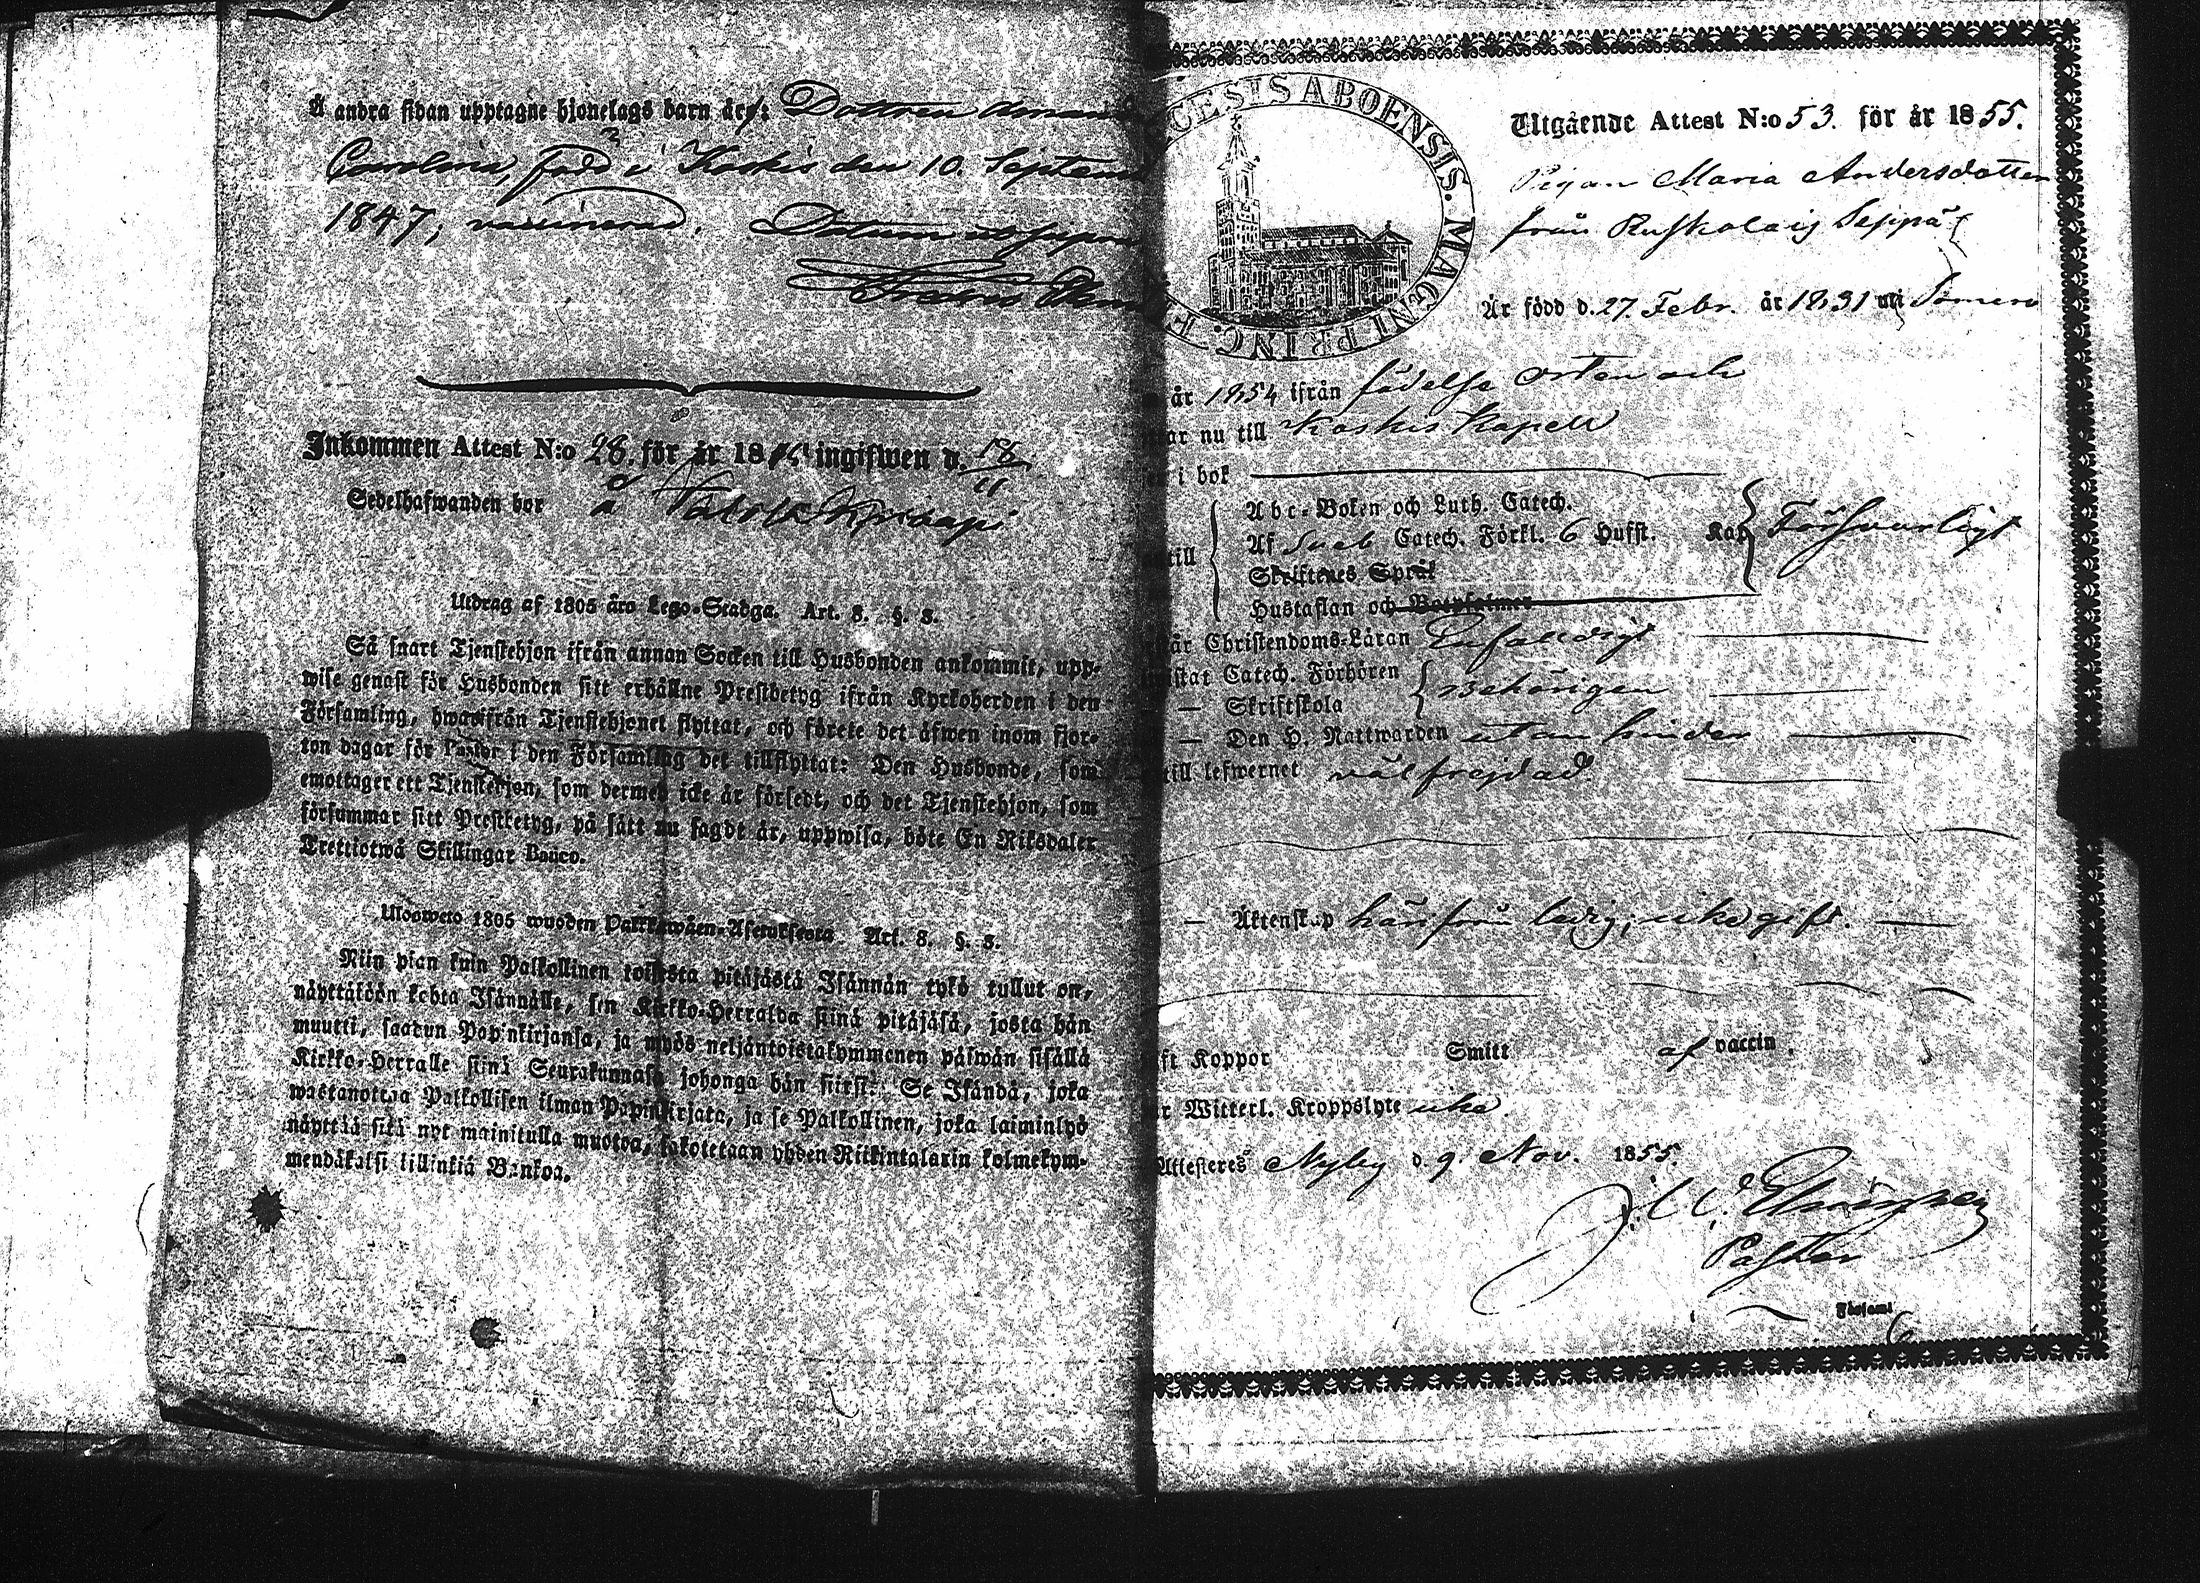 Å andra sidan upptagne hjonelags barn är: Dottren Aman
Carolina, född i Koskis den 10. Septem
1847; vaccinerad. Datum ut supra
Inkommen Attest N:o 28. för år 18 ingifwen d. 18/11
Sedelhafwanden bor å
Utdrag af 1805 års Lego-Stadga. Art. 8. §. 8.
Så snart Tjenstehjon ifrån annan Socken till Husbonden ankommit, upp-
wise genast för Husbonden sitt erhållne Prestbetyg ifrån Kyrkoherden i den
Församling, hwarifrån Tjenstehjonet flyttat, och förete det äfwen inom fjor-
ton dagar för Pastor i den Församling det tillflyttat: Den Husbonde, som
emottager ett Tjenstehjon, som dermed icke är försedt, och det Tjenstehjon, som
försummar sitt Prestbetyg, på sätt nu sagdt är, uppwisa, böte En Riksdaler
Trettiotwå Skillingar Banco.
Uloosweto 1805 wuoden Palkkawäen-Asetuksesta Art. 8. §. 8.
Niin pian kuin Palkollinen toisesta pitäjästä Isännän tykö tullut on,
näyttäköön kohta Isännälle, sen Kirkko-Herralda siinä pitäjäsä, josta hän
muutti, saadun Papinkirjansa, ja myös neljäntoistakymmenen päiwän sisällä
Kirkko-Herralle siinä Seurakunnasa johonga hän siirsi: Se Isändä, joka
wastanottaa Palkollisen ilman Papinkirjata, ja se Palkollinen, joka laiminlyö
näyttää sitä nyt mainitulla muotoa, sakotetaan yhden Riikintalarin kolmekym-
mendäkaksi killinkiä Bankoa.
CESIS ABOENSIS. MAGNI PRINC. F
Utgående Attest N:o 53. för år 1855.
Pigan Maria Andersdotter
från Ruskolais Seppä
Är född d. 27. Febr. år 1831 uti Somero
år 1854 ifrån födelse orten och
ar nu till Koskis Kapell
i bok
till
Abc-Boken och Luth. Catech.
Af Sveb Catech. Förkl. 6 Hufst. Kap Försvarligt
Skriftenes Språk
Hustaflan och Botpsalmer
är Christendoms-Läran Enfaldigt
istat Catech. Förhören
— Skriftskola behörigen
— Den H. Nattwarden utan hinder
till lefwernet välfrejdad
— Äktenskap härifrån ledig; icke gift.
ft Koppor Smitt af vaccin.
r Witterl. Kroppslyte icke
Attesteres Nyby d. 9. Nov. 1855.
Pastor
Församl